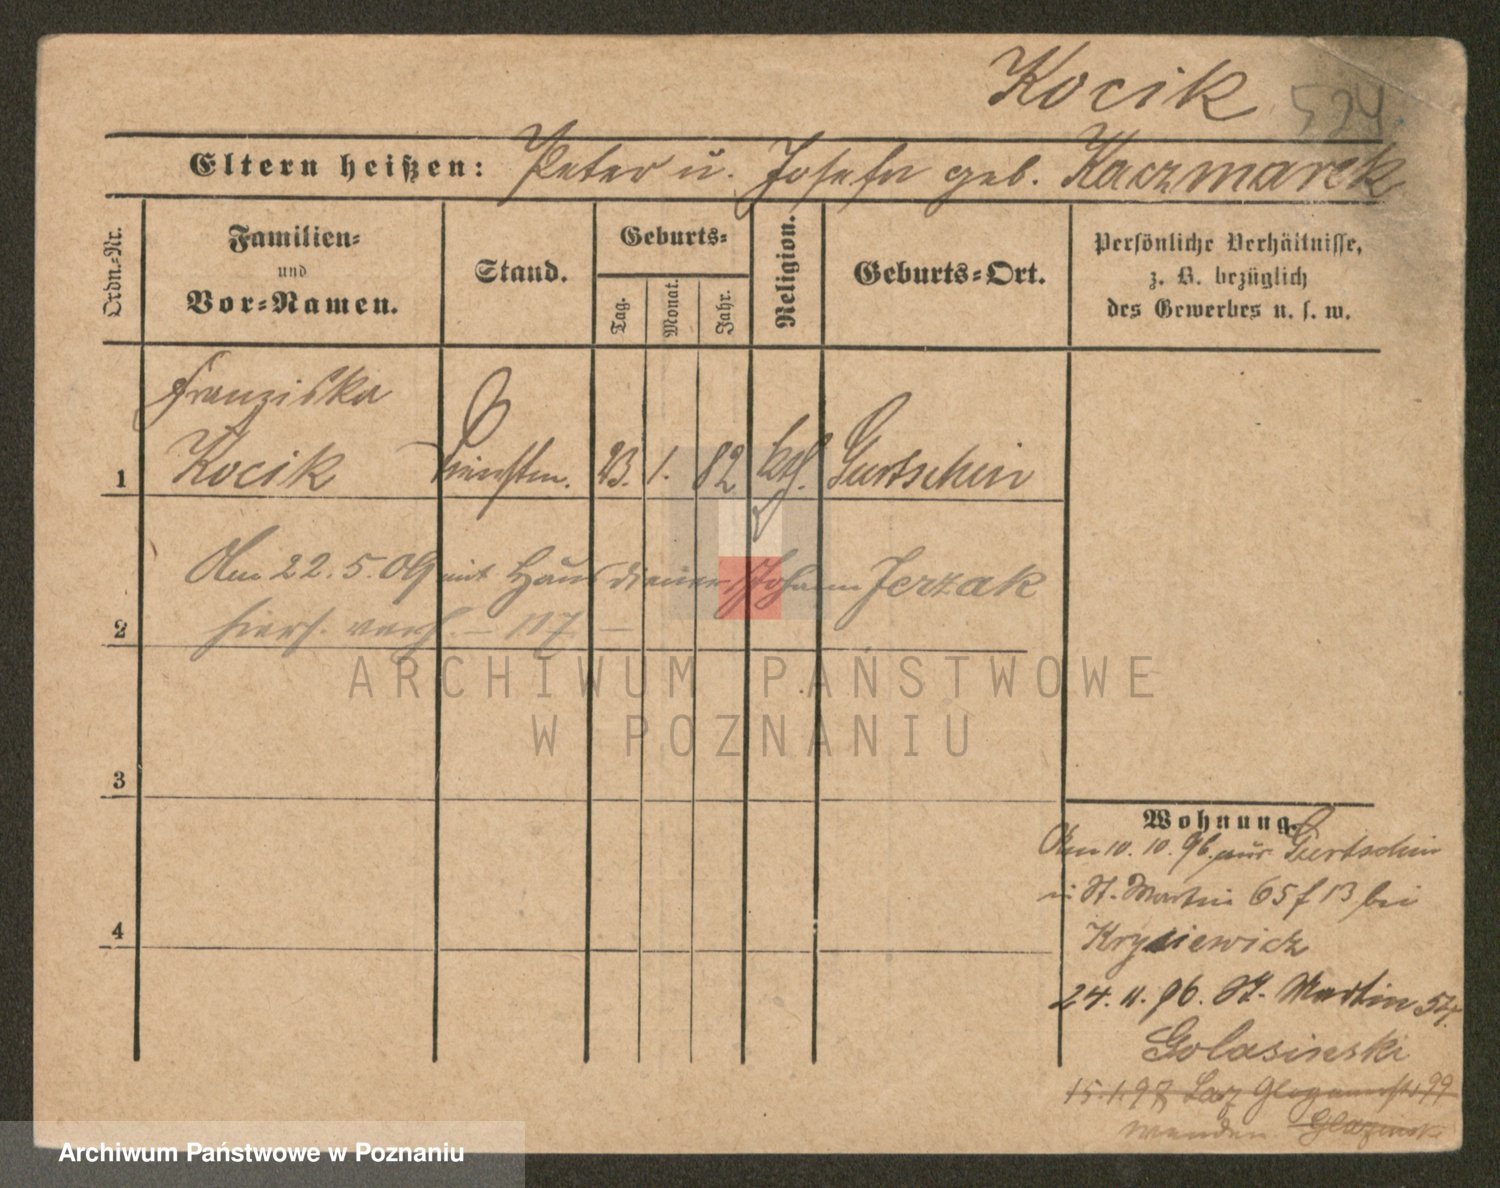 Kocik 524
Eltern heißen: Peter u. Josefa geb. Kaczmarek
Ordn.-Nr.
Familien-
und
Vor-Namen.
Stand.
Geburts-
Tag.
Monat.
Jahr.
Religion.
Geburts-Ort.
Persönliche Verhältnisse,
z. B. bezüglich
des Gewerbes u. s. w.
Franziska
1 Kocik Dienstm. 23. 1. 82 kth. Gurtschin
Am 22.5.09 mit Hausdiener Johann Jerzak
2 hiers. verh. – 117 –
ARCHIWUM PAŃSTWOWE
W POZNANIU
3
4
Wohnung.
Am 10. 10. 96. aus Gurtschin
in St. Martin 65 f B bei
Krysiewicz
24. 11. 96. St. Martin 57.
Golasinski
15.1.97 Laz 99
wenden.
Archiwum Państwowe w Poznaniu